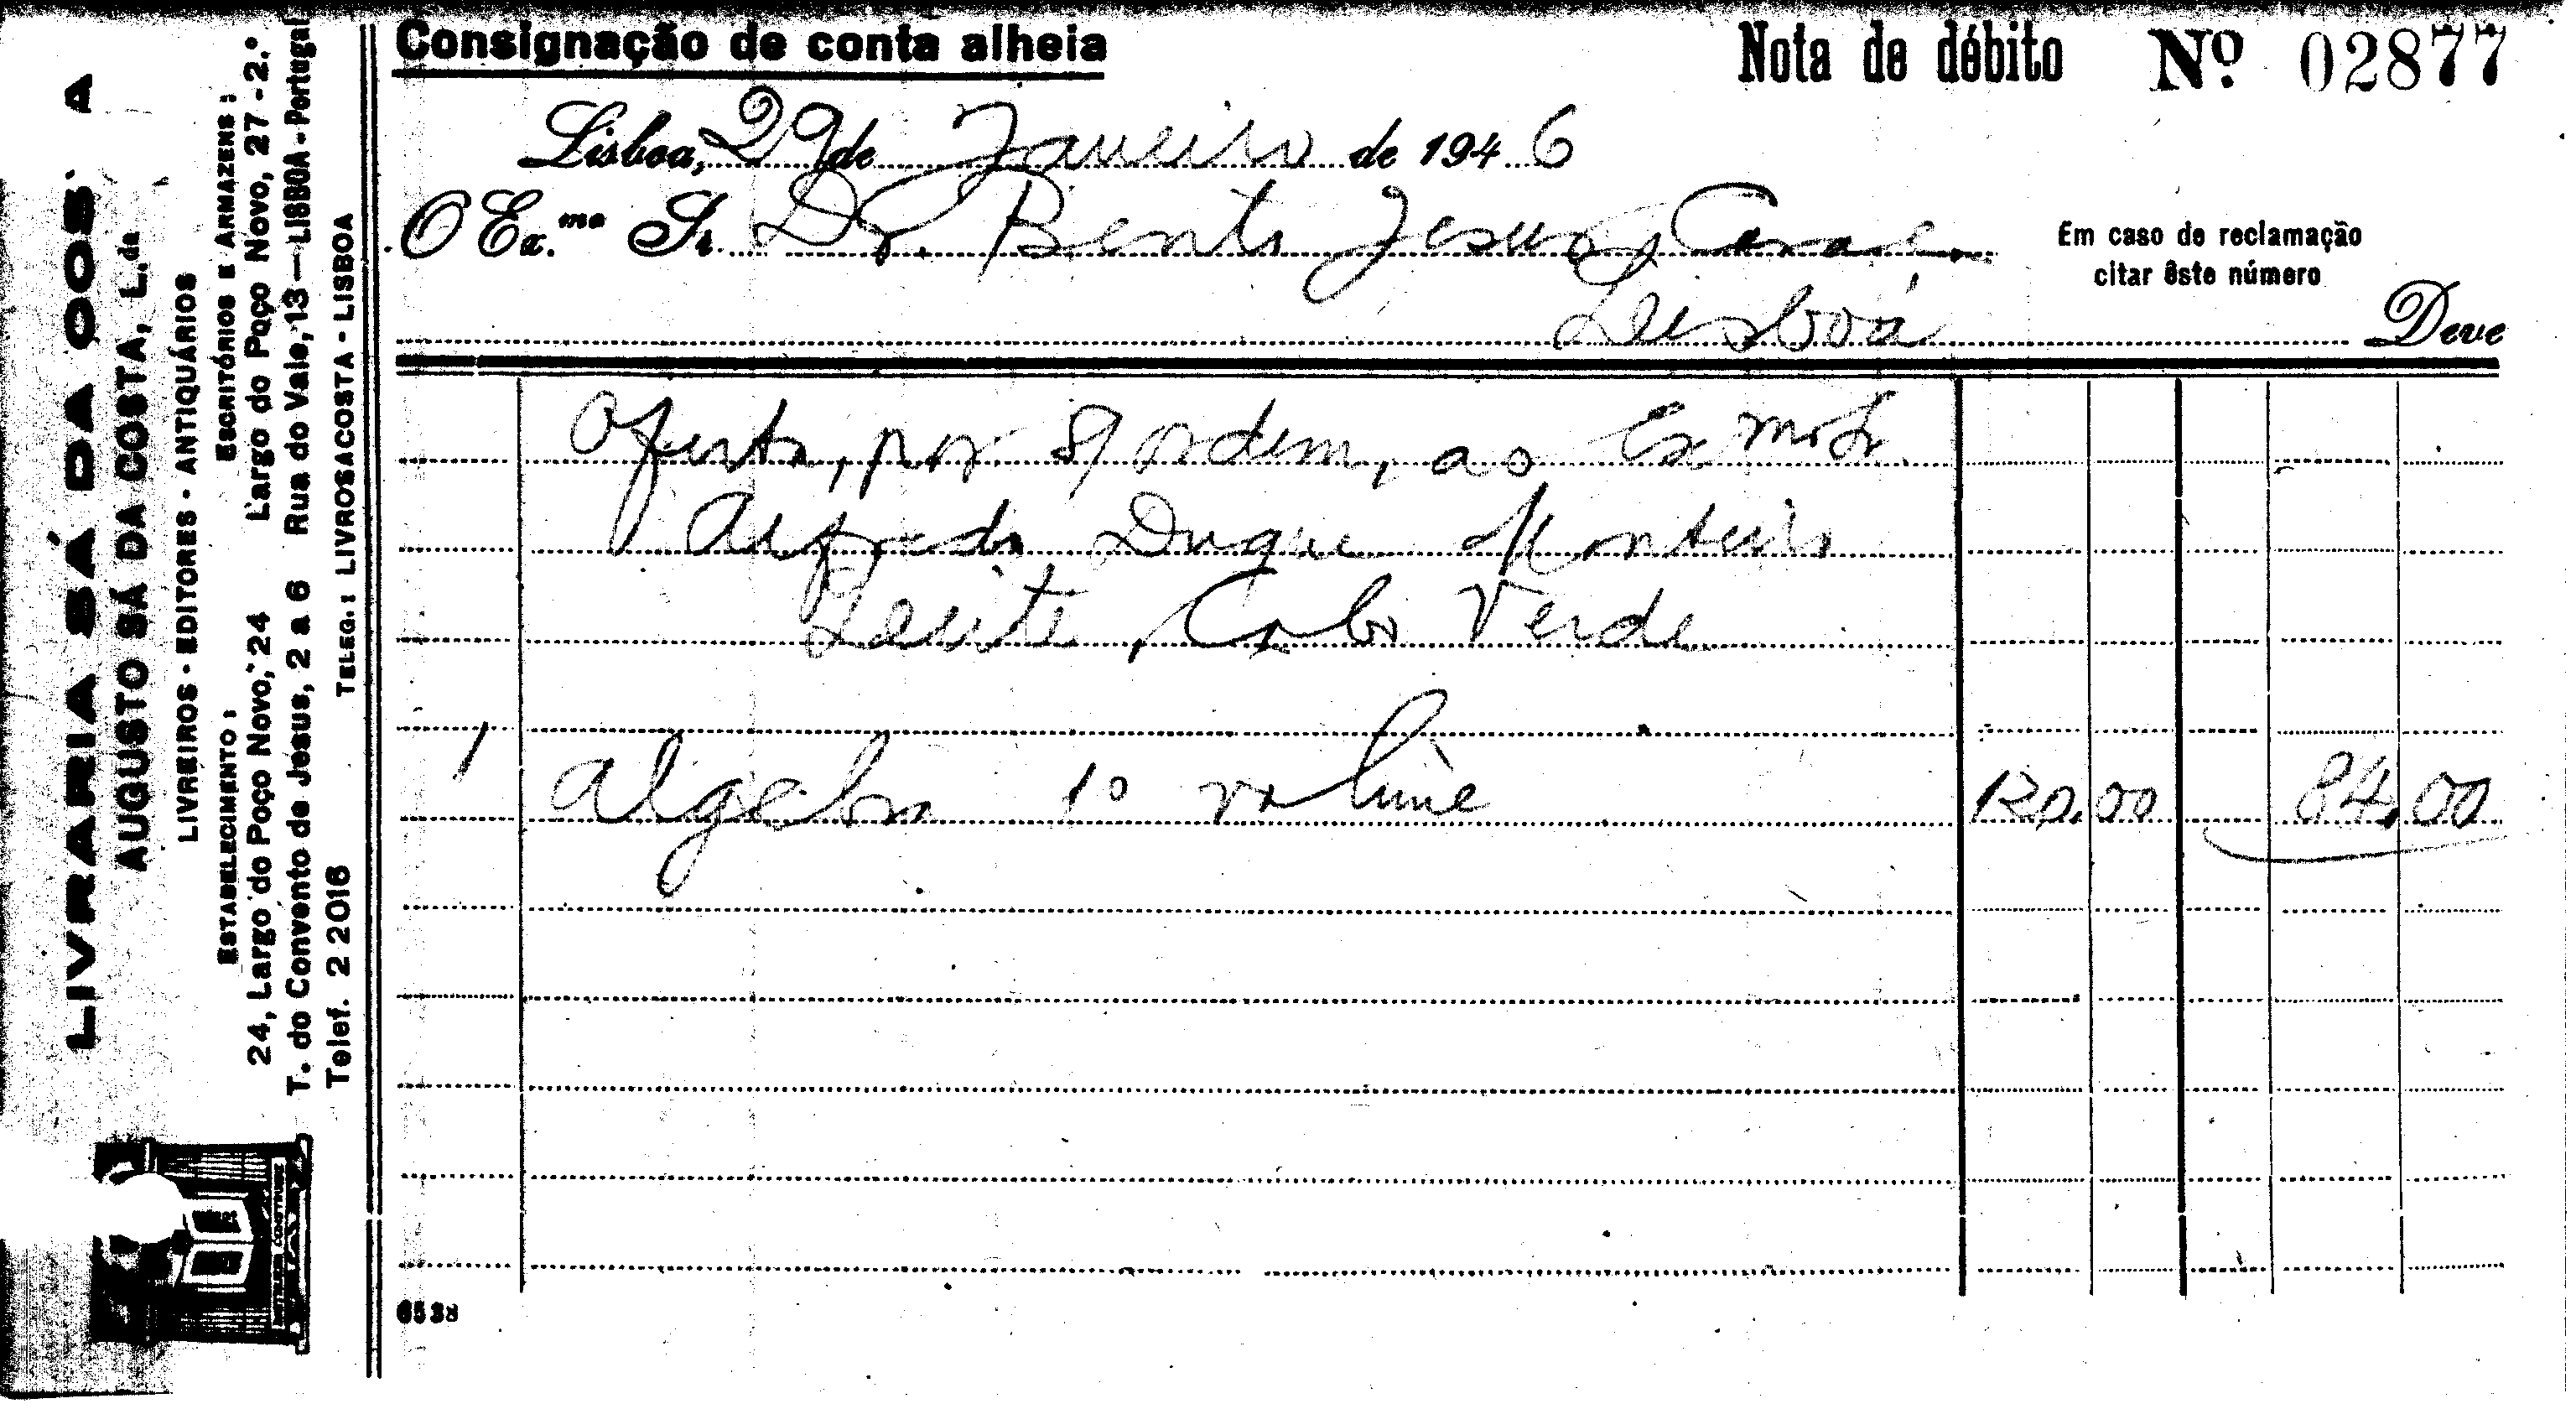 Consignação de conta alheia
Nota de débito Nº 02877
Lisboa, 29 de Janeiro de 1946
O Ex.mo Sr. Dr. Bento Jesus Caraça
Em caso de reclamação
citar êste número
Lisboa
Deve
Oferta, por s/ ordem, ao Exmo Sr.
Alfredo Duque Monteiro
Leite, Cabo Verde
1 Algebra 1º volume 120,00 84,00
6538
LIVRARIA SÁ DA COSTA
AUGUSTO SÁ DA COSTA, L.da
LIVREIROS - EDITORES - ANTIQUÁRIOS
ESTABELECIMENTO:
24, Largo do Poço Novo, 24
T. do Convento de Jesus, 2 a 6
Telef. 2 2016
ESCRITÓRIOS E ARMAZENS:
Largo do Poço Novo, 27-2.º
Rua do Vale, 13—LISBOA-Portugal
TELEG.: LIVROSACOSTA - LISBOA